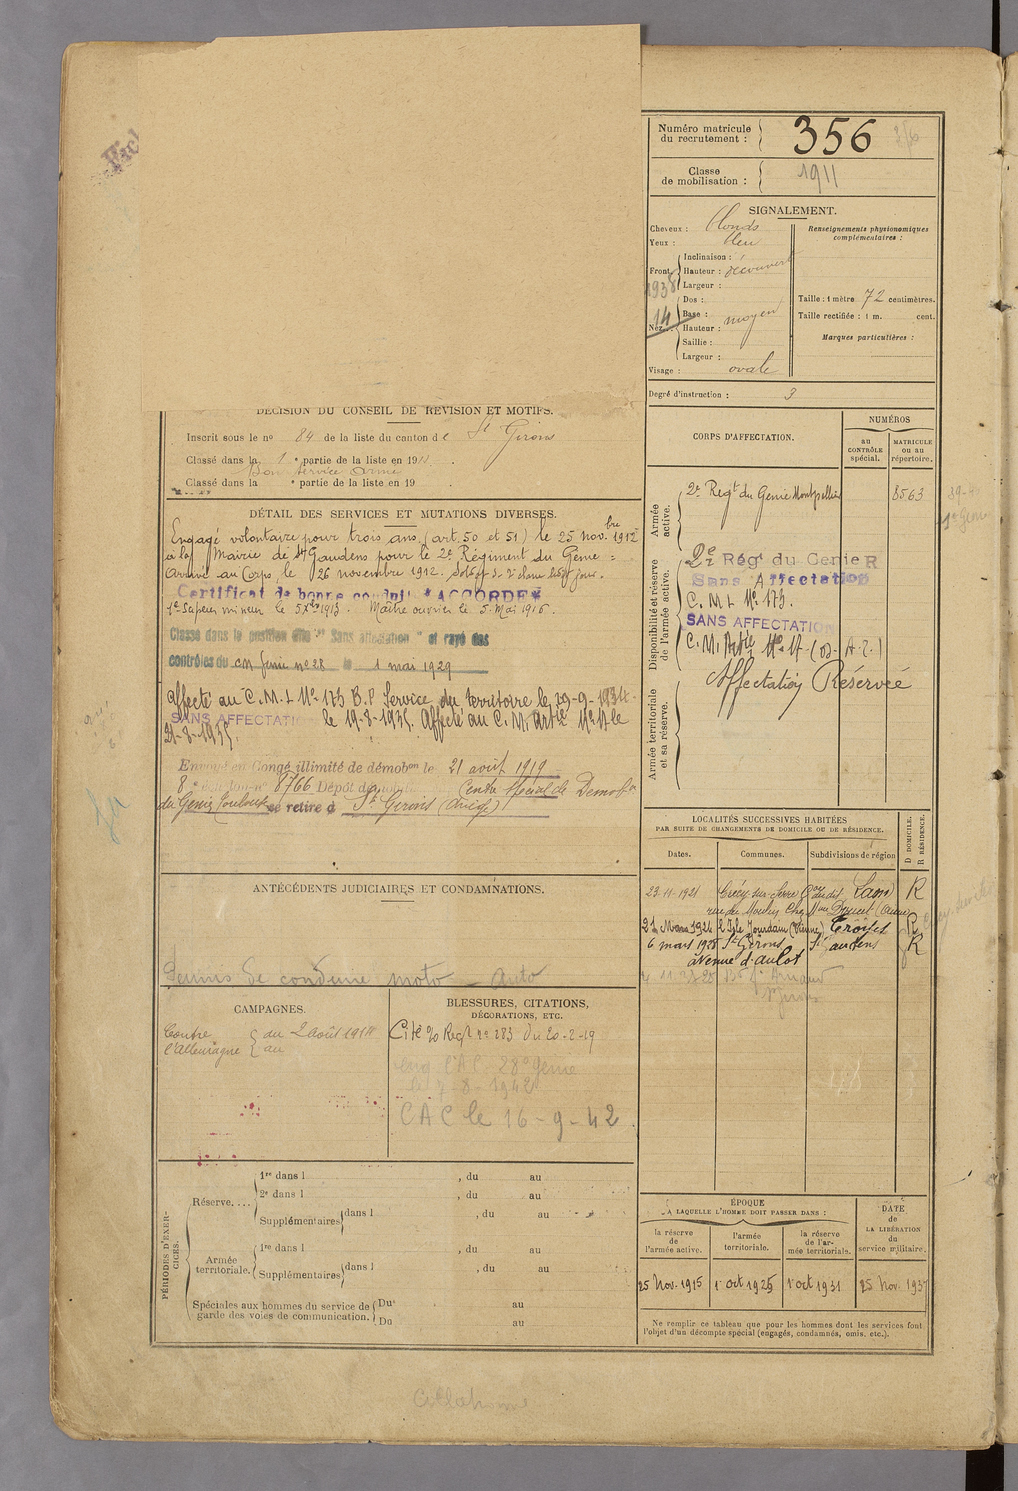 Numéro matricule
du recrutement :
356
Classe
de mobilisation :
1911
SIGNALEMENT.
Cheveux : blonds
Yeux : bleu
Front
Inclinaison :
Hauteur : découvert
Largeur :
1938
14
Nez
Dos :
Base :
Hauteur : moyen
Saillie :
Largeur :
Visage : ovale
Renseignements physionomiques
complémentaires :
Taille : 1 mètre 72 centimètres.
Taille rectifiée : 1 m. cent.
Marques particulières :
Degré d'instruction : 3
DÉCISION DU CONSEIL DE RÉVISION ET MOTIFS.
Inscrit sous le n° 84 de la liste du canton de St Girons
Classé dans la 1e partie de la liste en 19
Bon service armé
Classé dans la e partie de la liste en 19
DÉTAIL DES SERVICES ET MUTATIONS DIVERSES.
Engagé volontaire pour trois ans (art. 50 et 51) le 25 novbre 1912
à la Mairie de St Gaudens pour le 2e Régiment du Génie =
Arrivé au Corps, le 26 novembre 1912. Soldat de 2e classe ledit jour.
Certificat de bonne conduite "ACCORDÉ"
1e Sapeur mineur le 5 Xbre 1913. Maître ouvrier le 5 Mai 1916.
Classé dans la position dite "Sans affectation" et rayé des
contrôles du cm Génie n° 28 le 1 mai 1929
Affecté au C.M.L N° 173 B.P Service du territoire le 29-9-1934.
SANS AFFECTATION le 19-8-1935. Affecté au C. M. Artie N° 17 le
21-8-1935.
Envoyé en Congé illimité de démobon le 21 août 1919
8e échelon n° 8766 Dépôt démobr Centre Spécial de Démobon
du Génie Toulouse se retire à St Girons (Ariège)
ANTÉCÉDENTS JUDICIAIRES ET CONDAMNATIONS.
Permis de conduire moto - Auto
CAMPAGNES.
Contre
l'Allemagne
du 2 Août 1914
au
BLESSURES, CITATIONS,
DÉCORATIONS, ETC.
Cité % Regt n° 283 du 20-2-19
28e Génie
7-8-1942
CAC le 16-9-42
PÉRIODES D'EXERCICES.
Réserve....
1re dans l , du au
2e dans l , du au
Supplémentaires dans l , du au
Armée
territoriale.
1re dans l , du au
Supplémentaires dans l , du au
Spéciales aux hommes du service de
garde des voies de communication.
Du au
Du au
CORPS D'AFFECTATION.
NUMÉROS
au
CONTRÔLE
spécial.
MATRICULE
ou au
répertoire.
Armée
active.
2e Regt du Génie Montpellier
8563
Disponibilité et réserve
de l'armée active.
2e Régt du Génie R
Sans Affectation
C. M. L N° 173.
SANS AFFECTATION
C. M. Artie N° 17
Affectation Réservée
Armée territoriale
et sa réserve.
LOCALITÉS SUCCESSIVES HABITÉES
PAR SUITE DE CHANGEMENTS DE DOMICILE OU DE RÉSIDENCE.
Dates.
Communes.
Subdivisions de région
D DOMICILE.
R RÉSIDENCE.
23-11-1921 Crécy-sur-Serre Laon R
rue du Moulin (Aisne)
l'Isle Jourdain (Vienne) R
6 mars 1928 St Girons St Gaudens R
avenue d'aulot
St Girons
ÉPOQUE
A LAQUELLE L'HOMME DOIT PASSER DANS :
la réserve
de
l'armée active.
l'armée
territoriale.
la réserve
de l'ar-
mée territoriale.
DATE
de
LA LIBÉRATION
du
service militaire.
25 Nov. 1915
1e oct 1925
1e oct 1931
25 Nov. 1937
Ne remplir ce tableau que pour les hommes dont les services font
l'objet d'un décompte spécial (engagés, condamnés, omis, etc.).